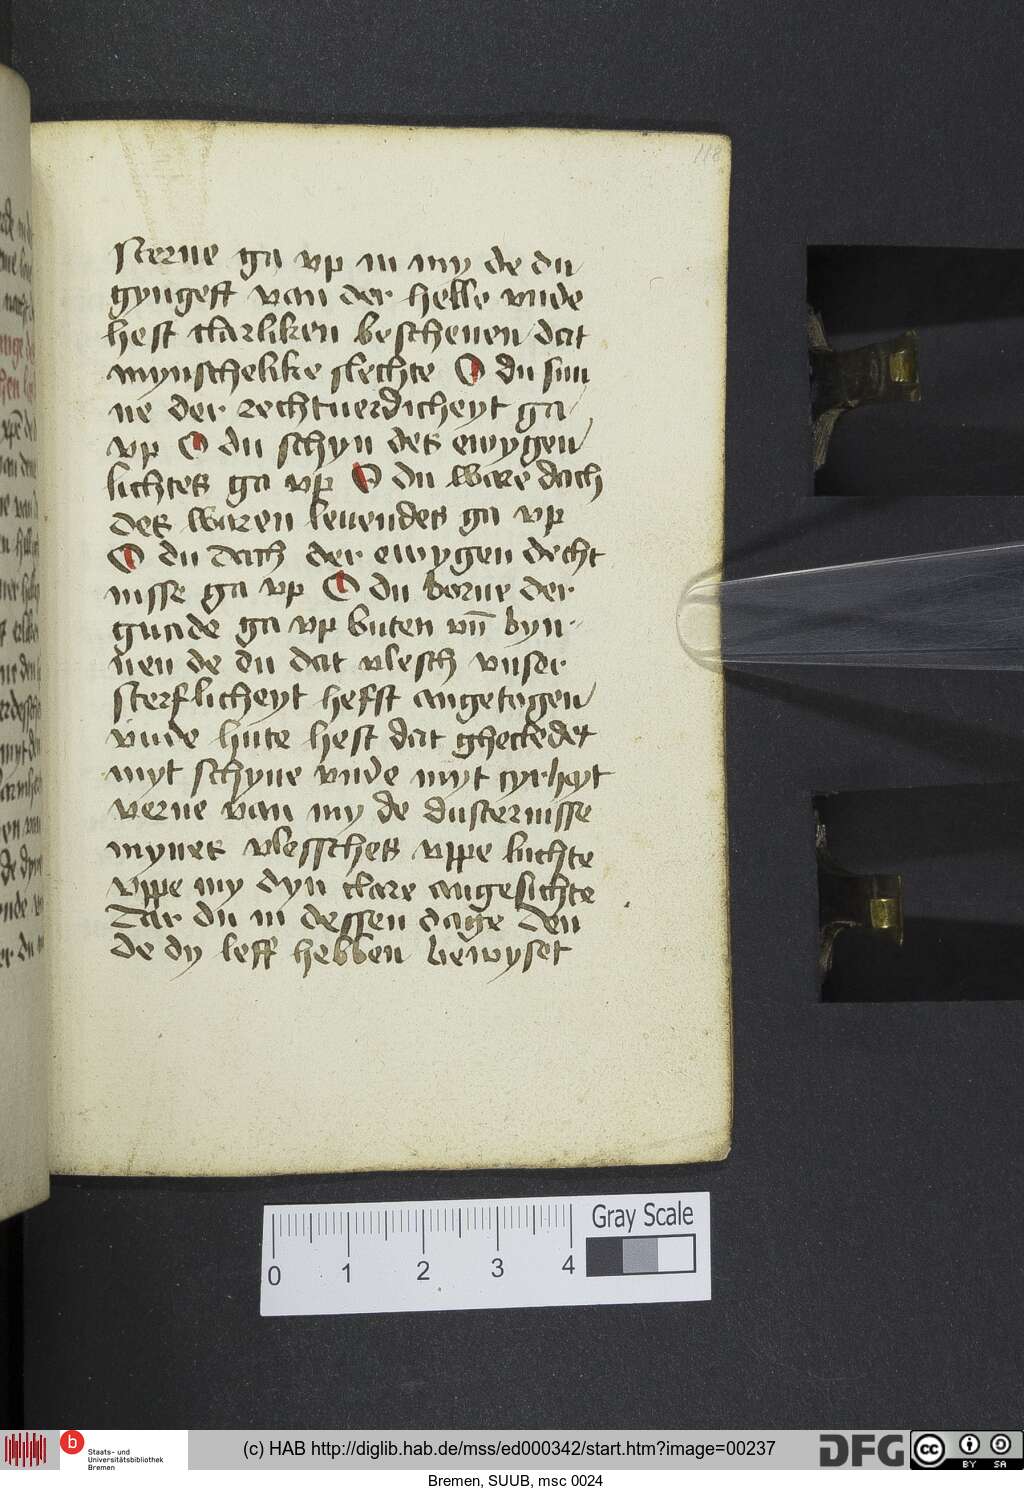 118
sterne ga vp in my de du
gyngest van der helle vnde
hest clarliken beschenen dat
mynschelike slechte O du sun
ne der rechtuerdicheyt ga
vp O du schyn des ewygen
lichtes ga vp O du ware dach
des waren leuendes ga vp
O du dach der ewygen decht
nisse ga vp O du borne der
gnade ga vp buten vn̄ byn
nen de du dat vlesch vnser
sterflicheyt hefst angetogen
vnde hute hest dat ghecledet
myt schyne vnde myt cyrheyt
verne van my de dusternisse
mynes vlessches vppe luchte
vppe my dyn clare angesichte
Dar du in dessen dage den
de dy leff hebben bewyset
0 1 2 3 4
Gray Scale
b
Staats- und
Universitätsbibliothek
Bremen
(c) HAB http://diglib.hab.de/mss/ed000342/start.htm?image=00237
DFG
cc
BY SA
Bremen, SUUB, msc 0024